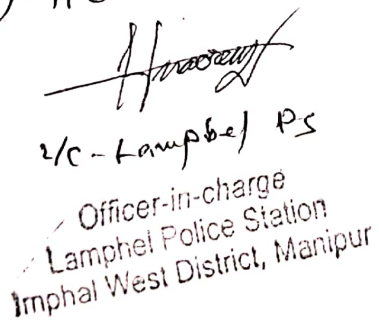 O/C - Lamphel PS
Officer-in-charge
Lamphel Police Station
Imphal West District, Manipur